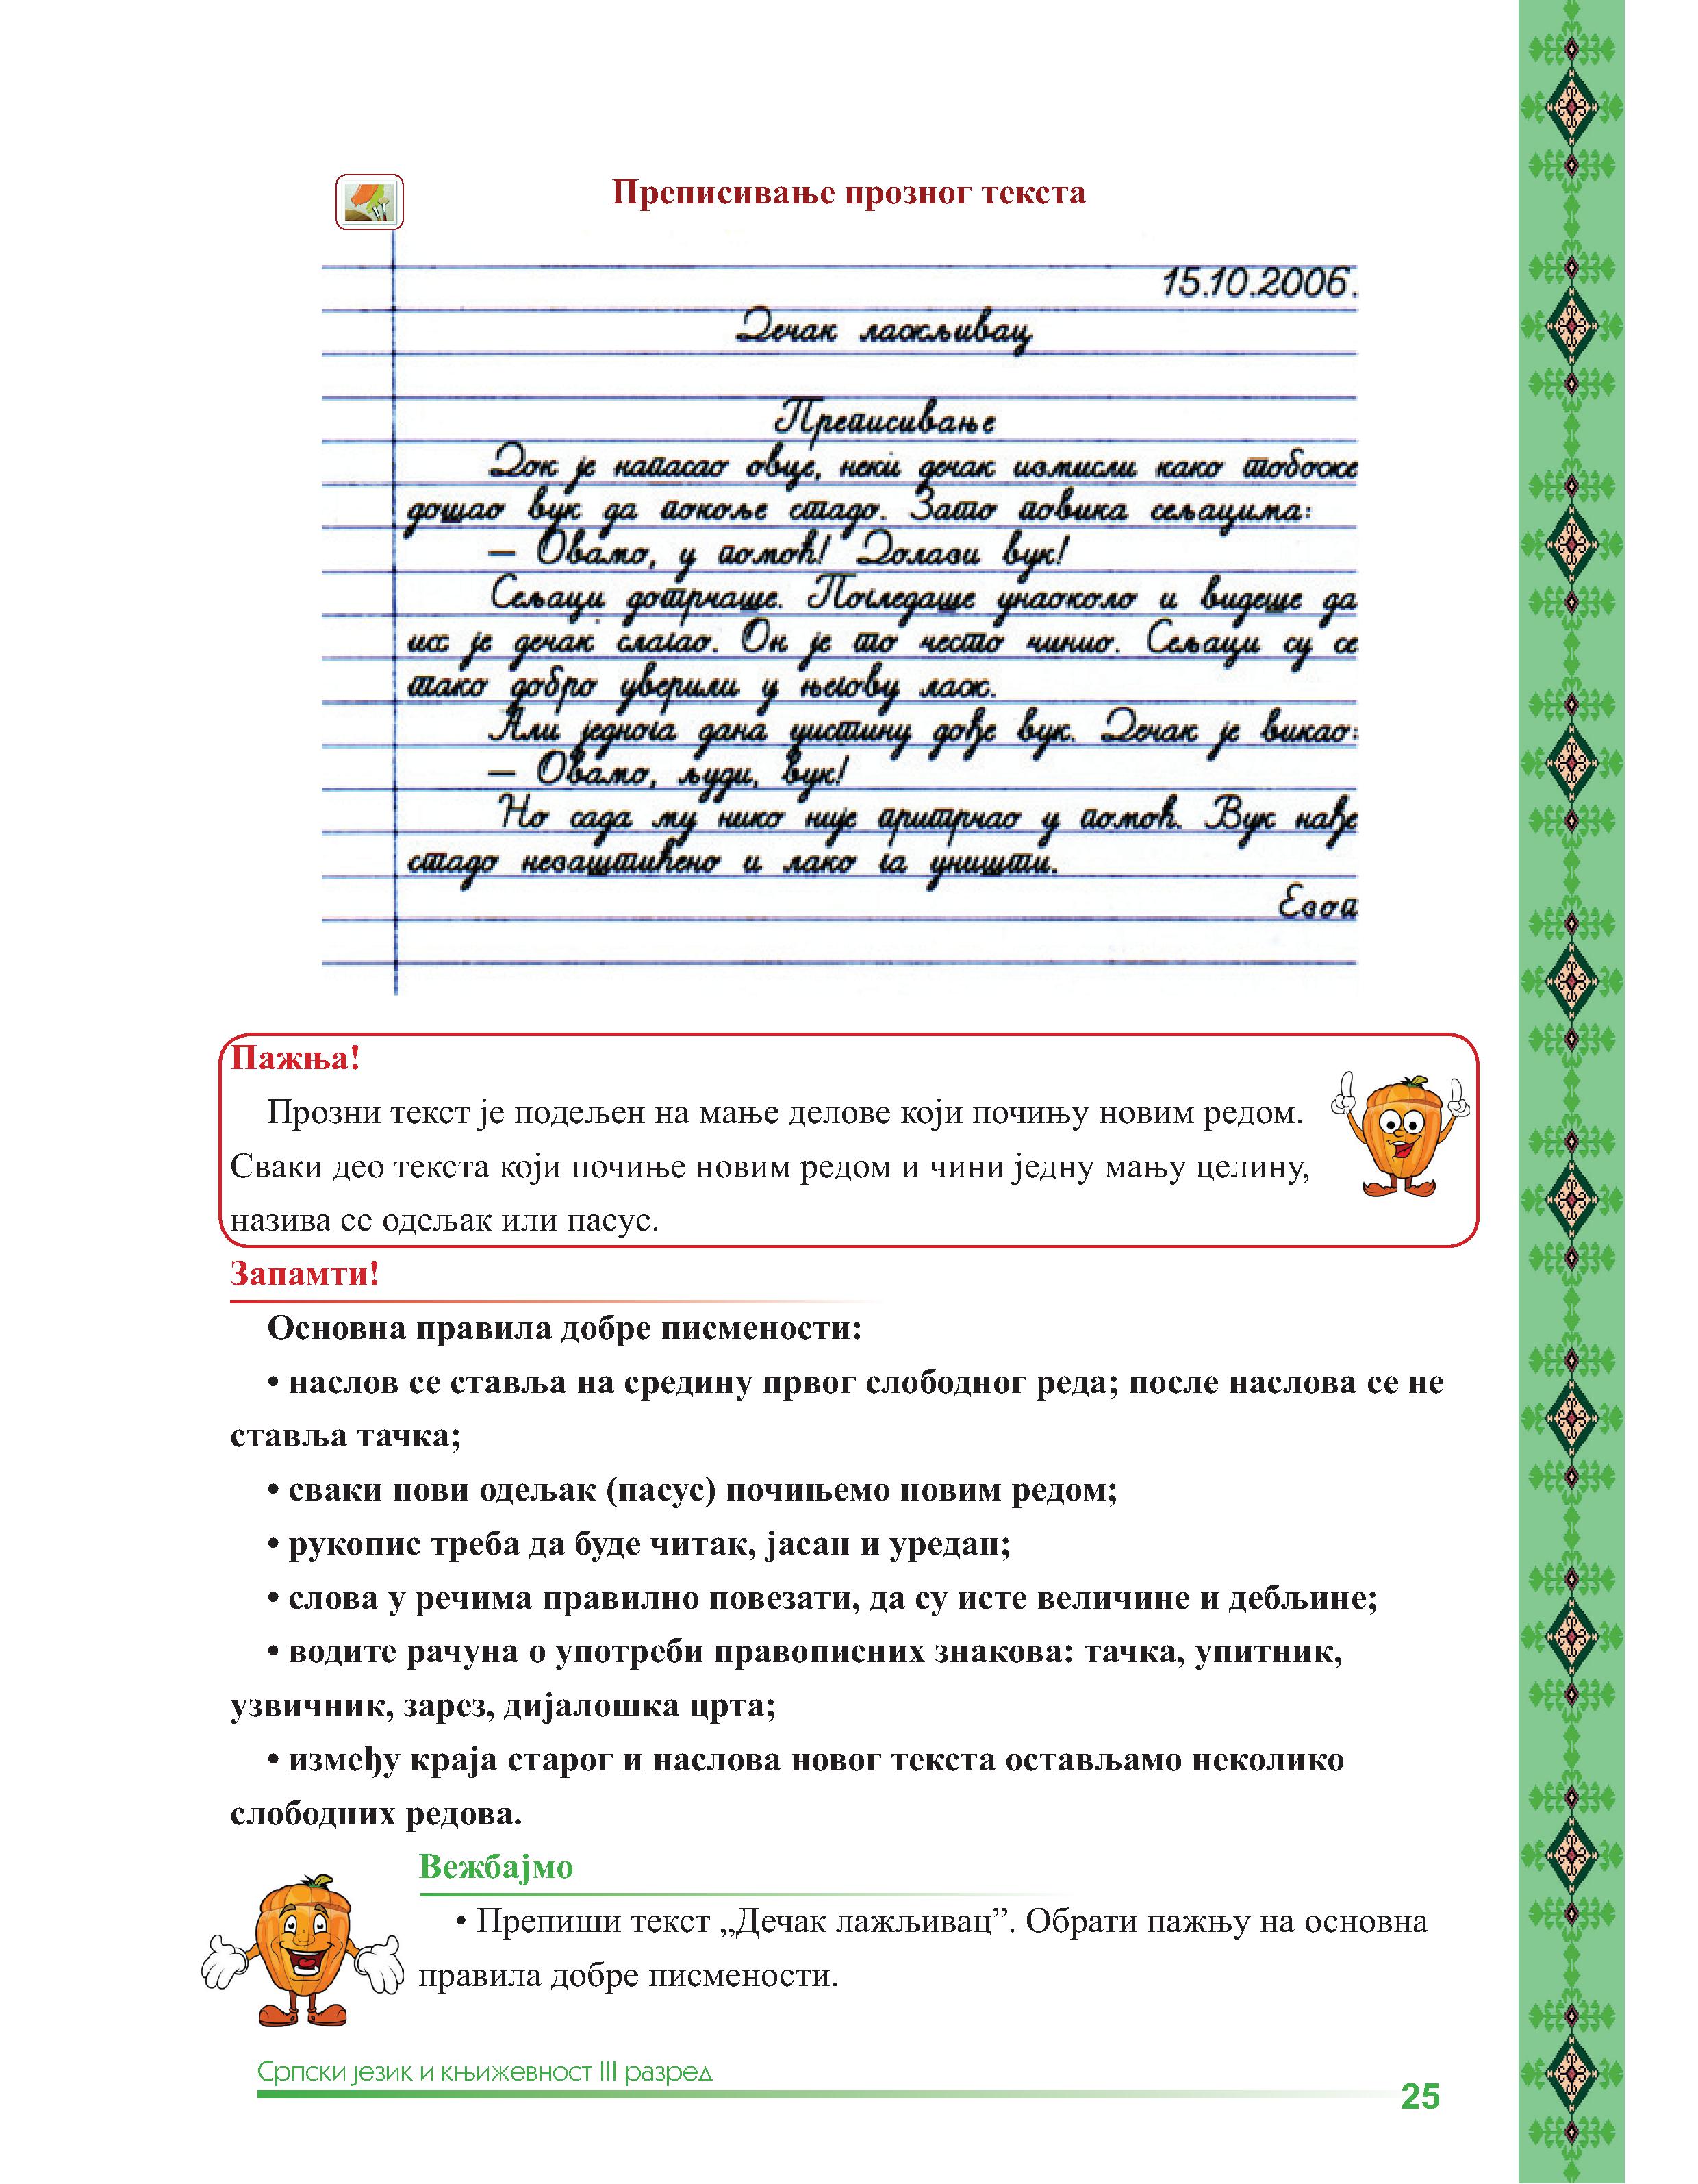 Преписивање прозног текста
15.10.2006.
Дечак лажљивац
Преписивање
Док је напасао овце, неки дечак измисли како тобоже
дошао вук да покоље стадо. Зато повика сељацима:
— Овамо, у помоћ! Долази вук!
Сељаци дотрчаше. Погледаше унаоколо и видеше да
их је дечак слагао. Он је то често чинио. Сељаци су се
тако добро уверили у његову лаж.
Али једнога дана уистину дође вук. Дечак је викао:
— Овамо, људи, вук!
Но сада му нико није притрчао у помоћ. Вук нађе
стадо незаштићено и лако га уништи.
Езоп
Пажња!
Прозни текст је подељен на мање делове који почињу новим редом.
Сваки део текста који почиње новим редом и чини једну мању целину,
назива се одељак или пасус.
Запамти!
Основна правила добре писмености:
• наслов се ставља на средину првог слободног реда; после наслова се не
ставља тачка;
• сваки нови одељак (пасус) почињемо новим редом;
• рукопис треба да буде читак, јасан и уредан;
• слова у речима правилно повезати, да су исте величине и дебљине;
• водите рачуна о употреби правописних знакова: тачка, упитник,
узвичник, зарез, дијалошка црта;
• између краја старог и наслова новог текста остављамо неколико
слободних редова.
Вежбајмо
• Препиши текст „Дечак лажљивац”. Обрати пажњу на основна
правила добре писмености.
Српски језик и књижевност III разред
25